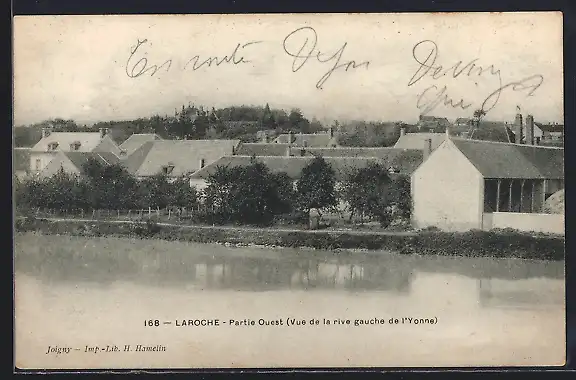 En route Dijon
168 — LAROCHE - Partie Ouest (Vue de la rive gauche de l'Yonne)
Joigny — Imp.-Lib. H. Hamelin